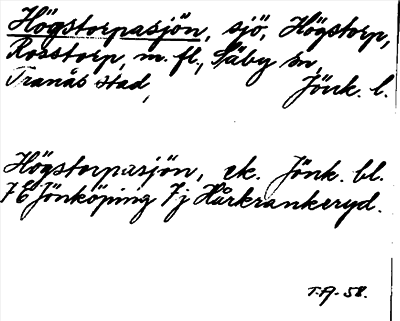 Högstorpasjön, sjö, Högstorp,
Rosstorp, m. fl., Säby sn,
Tranås stad, Jönk. l.
Högstorpasjön, ek. Jönk. bl.
7E Jönköping 7j Hårkrankeryd.
T.A. 58.